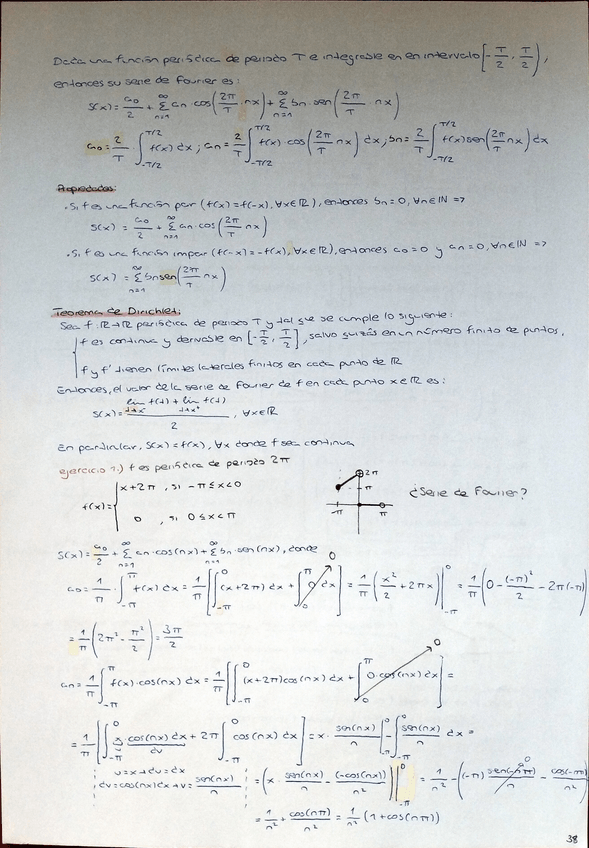 Dada una función periódica de periodo T e integrable en en intervalo [-T/2, T/2],
entonces su serie de Fourier es:
S(x) = a₀/2 + Σ_{n=1}^{∞} an · cos(2π/T · nx) + Σ_{n=1}^{∞} bn · sen(2π/T · nx)
a₀ = 2/T · ∫_{-T/2}^{T/2} f(x) dx; an = 2/T ∫_{-T/2}^{T/2} f(x) · cos(2π/T nx) dx; bn = 2/T ∫_{-T/2}^{T/2} f(x) sen(2π/T nx) dx
Propiedades:
. Si f es una función par (f(x) = f(-x), ∀x∈ℝ), entonces bn = 0, ∀n∈ℕ =>
S(x) = a₀/2 + Σ_{n=1}^{∞} an · cos(2π/T nx)
. Si f es una función impar (f(-x) = -f(x), ∀x∈ℝ), entonces a₀ = 0 y an = 0, ∀n∈ℕ =>
S(x) = Σ_{n=1}^{∞} bn sen(2π/T nx)
Teorema de Dirichlet:
Sea f: ℝ→ℝ periódica de periodo T y tal que se cumple lo siguiente:
f es continua y derivable en [-T/2, T/2], salvo quizás en un número finito de puntos,
f y f' tienen límites laterales finitos en cada punto de ℝ
Entonces, el valor de la serie de Fourier de f en cada punto x∈ℝ es:
S(x) = (lim_{t→x⁻} f(t) + lim_{t→x⁺} f(t)) / 2, ∀x∈ℝ
En particular, S(x) = f(x), ∀x donde f sea continua
ejercicio 1.) f es periódica de periodo 2π
f(x) = { x+2π, si -π≤x<0
0, si 0≤x<π
2π
π
-π π
¿Serie de Fourier?
S(x) = a₀/2 + Σ_{n=1}^{∞} an · cos(nx) + Σ_{n=1}^{∞} bn · sen(nx), donde
a₀ = 1/π · ∫_{-π}^{π} f(x) dx = 1/π [∫_{-π}^{0} (x+2π) dx + ∫_{0}^{π} 0 dx] = 1/π (x²/2 + 2πx) |_{-π}^{0} = 1/π (0 - (-π)²/2 - 2π(-π)
0
= 1/π (2π² - π²/2) = 3π/2
an = 1/π ∫_{-π}^{π} f(x) · cos(nx) dx = 1/π [∫_{-π}^{0} (x+2π) cos(nx) dx + ∫_{0}^{π} 0 · cos(nx) dx] =
0
= 1/π [∫_{-π}^{0} x · cos(nx) dx + 2π ∫_{-π}^{0} cos(nx) dx] = x · sen(nx)/n |_{-π}^{0} - ∫_{-π}^{0} sen(nx)/n dx =
u dv
u = x → du = dx
dv = cos(nx) dx → v = sen(nx)/n
= (x · sen(nx)/n - (-cos(nx))/n² |_{-π}^{0} = 1/n² - (-π) sen(-nπ)/n - cos(-nπ)/n²
0
= 1/n² + cos(nπ)/n² = 1/n² (1 + cos(nπ))
38